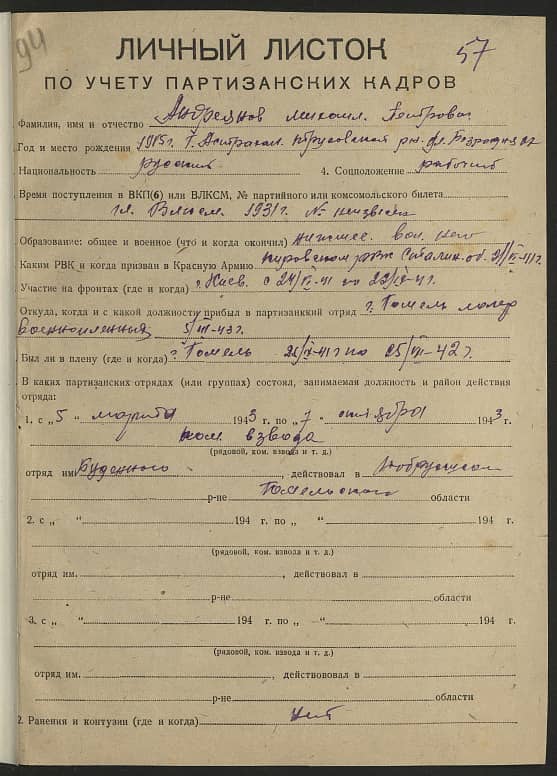 94
57
ЛИЧНЫЙ ЛИСТОК
ПО УЧЕТУ ПАРТИЗАНСКИХ КАДРОВ
Фамилия, имя и отчество Андреянов Михаил Петрович
Год и место рождения 1915 г. Г. Астрахан.
Национальность русский 4. Соцположение рабочий
Время поступления в ВКП(б) или ВЛКСМ, № партийного или комсомольского билета
чл. 1931 г. № неизвестн
Образование: общее и военное (что и когда окончил) низшее. нет
Каким РВК и когда призван в Красную Армию Кировском рвк Сталин. об.
Участие на фронтах (где и когда) г. Киев. с
Откуда, когда и с какой должности прибыл в партизанкий отряд г. Гомель лагер
военнопленных 5/III-43 г.
Был ли в плену (где и когда) г. Гомель по
В каких партизанских отрядах (или группах) состоял, занимаемая должность и район действия
отряда:
1. с „5 “ марта 1943 г. по „7 “ октября 1943 г.
ком. взвода
(рядовой, ком. взвода и т. д.)
отряд им. Буденного, действовал в
р-не Гомельского области
2. с „ “ 194 г. по „ “ 194 г.
(рядовой, ком. взвода и т. д.)
отряд им. , действовал в
р-не области
3. с „ “ 194 г. по „ “ 194 г.
(рядовой, ком. взвода и т. д.)
отряд им. , действовал в
р-не области
2. Ранения и контузии (где и когда) нет